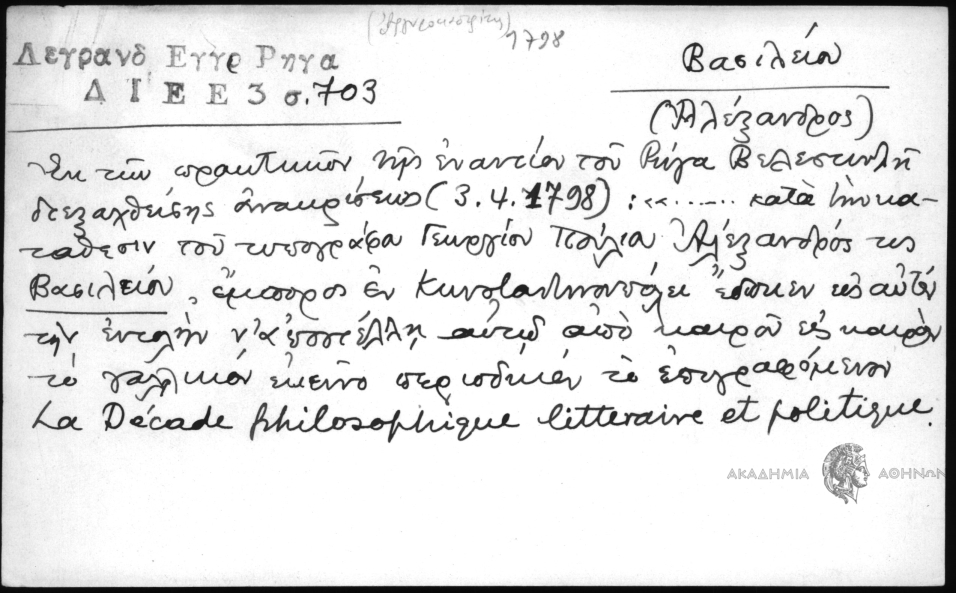 (Ἀργυροκαστρίτης) 1798
Δεγράνδ Εγγρ Ρηγα
Δ Ι Ε Ε 3 σ.703
Βασιλείου
(Ἀλέξανδρος)
Ἐκ τῶν πρακτικῶν τῆς ἐναντίον τοῦ Ρήγα Βελεστινλῆ
διεξαχθείσης ἀνακρίσεως (3.4.1798) : «....... κατὰ τὴν κα-
τάθεσιν τοῦ τυπογράφου Γεωργίου Πούλιο Ἀλέξανδρός τις
Βασιλείου, ἔμπορος ἐν Κωνσταντινουπόλει ἔδωκεν εἰς αὐτόν
τὴν ἐντολὴν ν' ἀποστέλλῃ αὐτῷ ἀπὸ καιροῦ εἰς καιρὸν
τὸ γαλλικόν ἐκεῖνο περιοδικόν τὸ ἐπιγραφόμενον
La Décade philosophique litteraire et politique.
ΑΚΑΔΗΜΙΑ ΑΘΗΝΩΝ